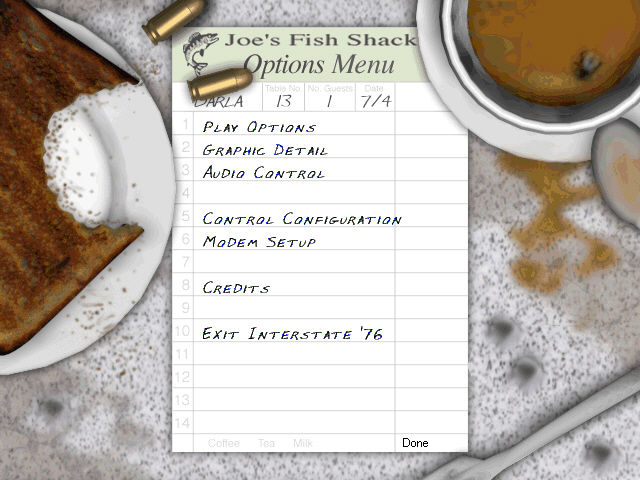 Joe's Fish Shack
Options Menu
Table No. No. Guests Date
DARLA 13 1 7/4
1 Play Options
2 Graphic Detail
3 Audio Control
4
5 Control Configuration
6 Modem Setup
7
8 Credits
9
10 Exit Interstate '76
11
12
13
14
Coffee Tea Milk Done